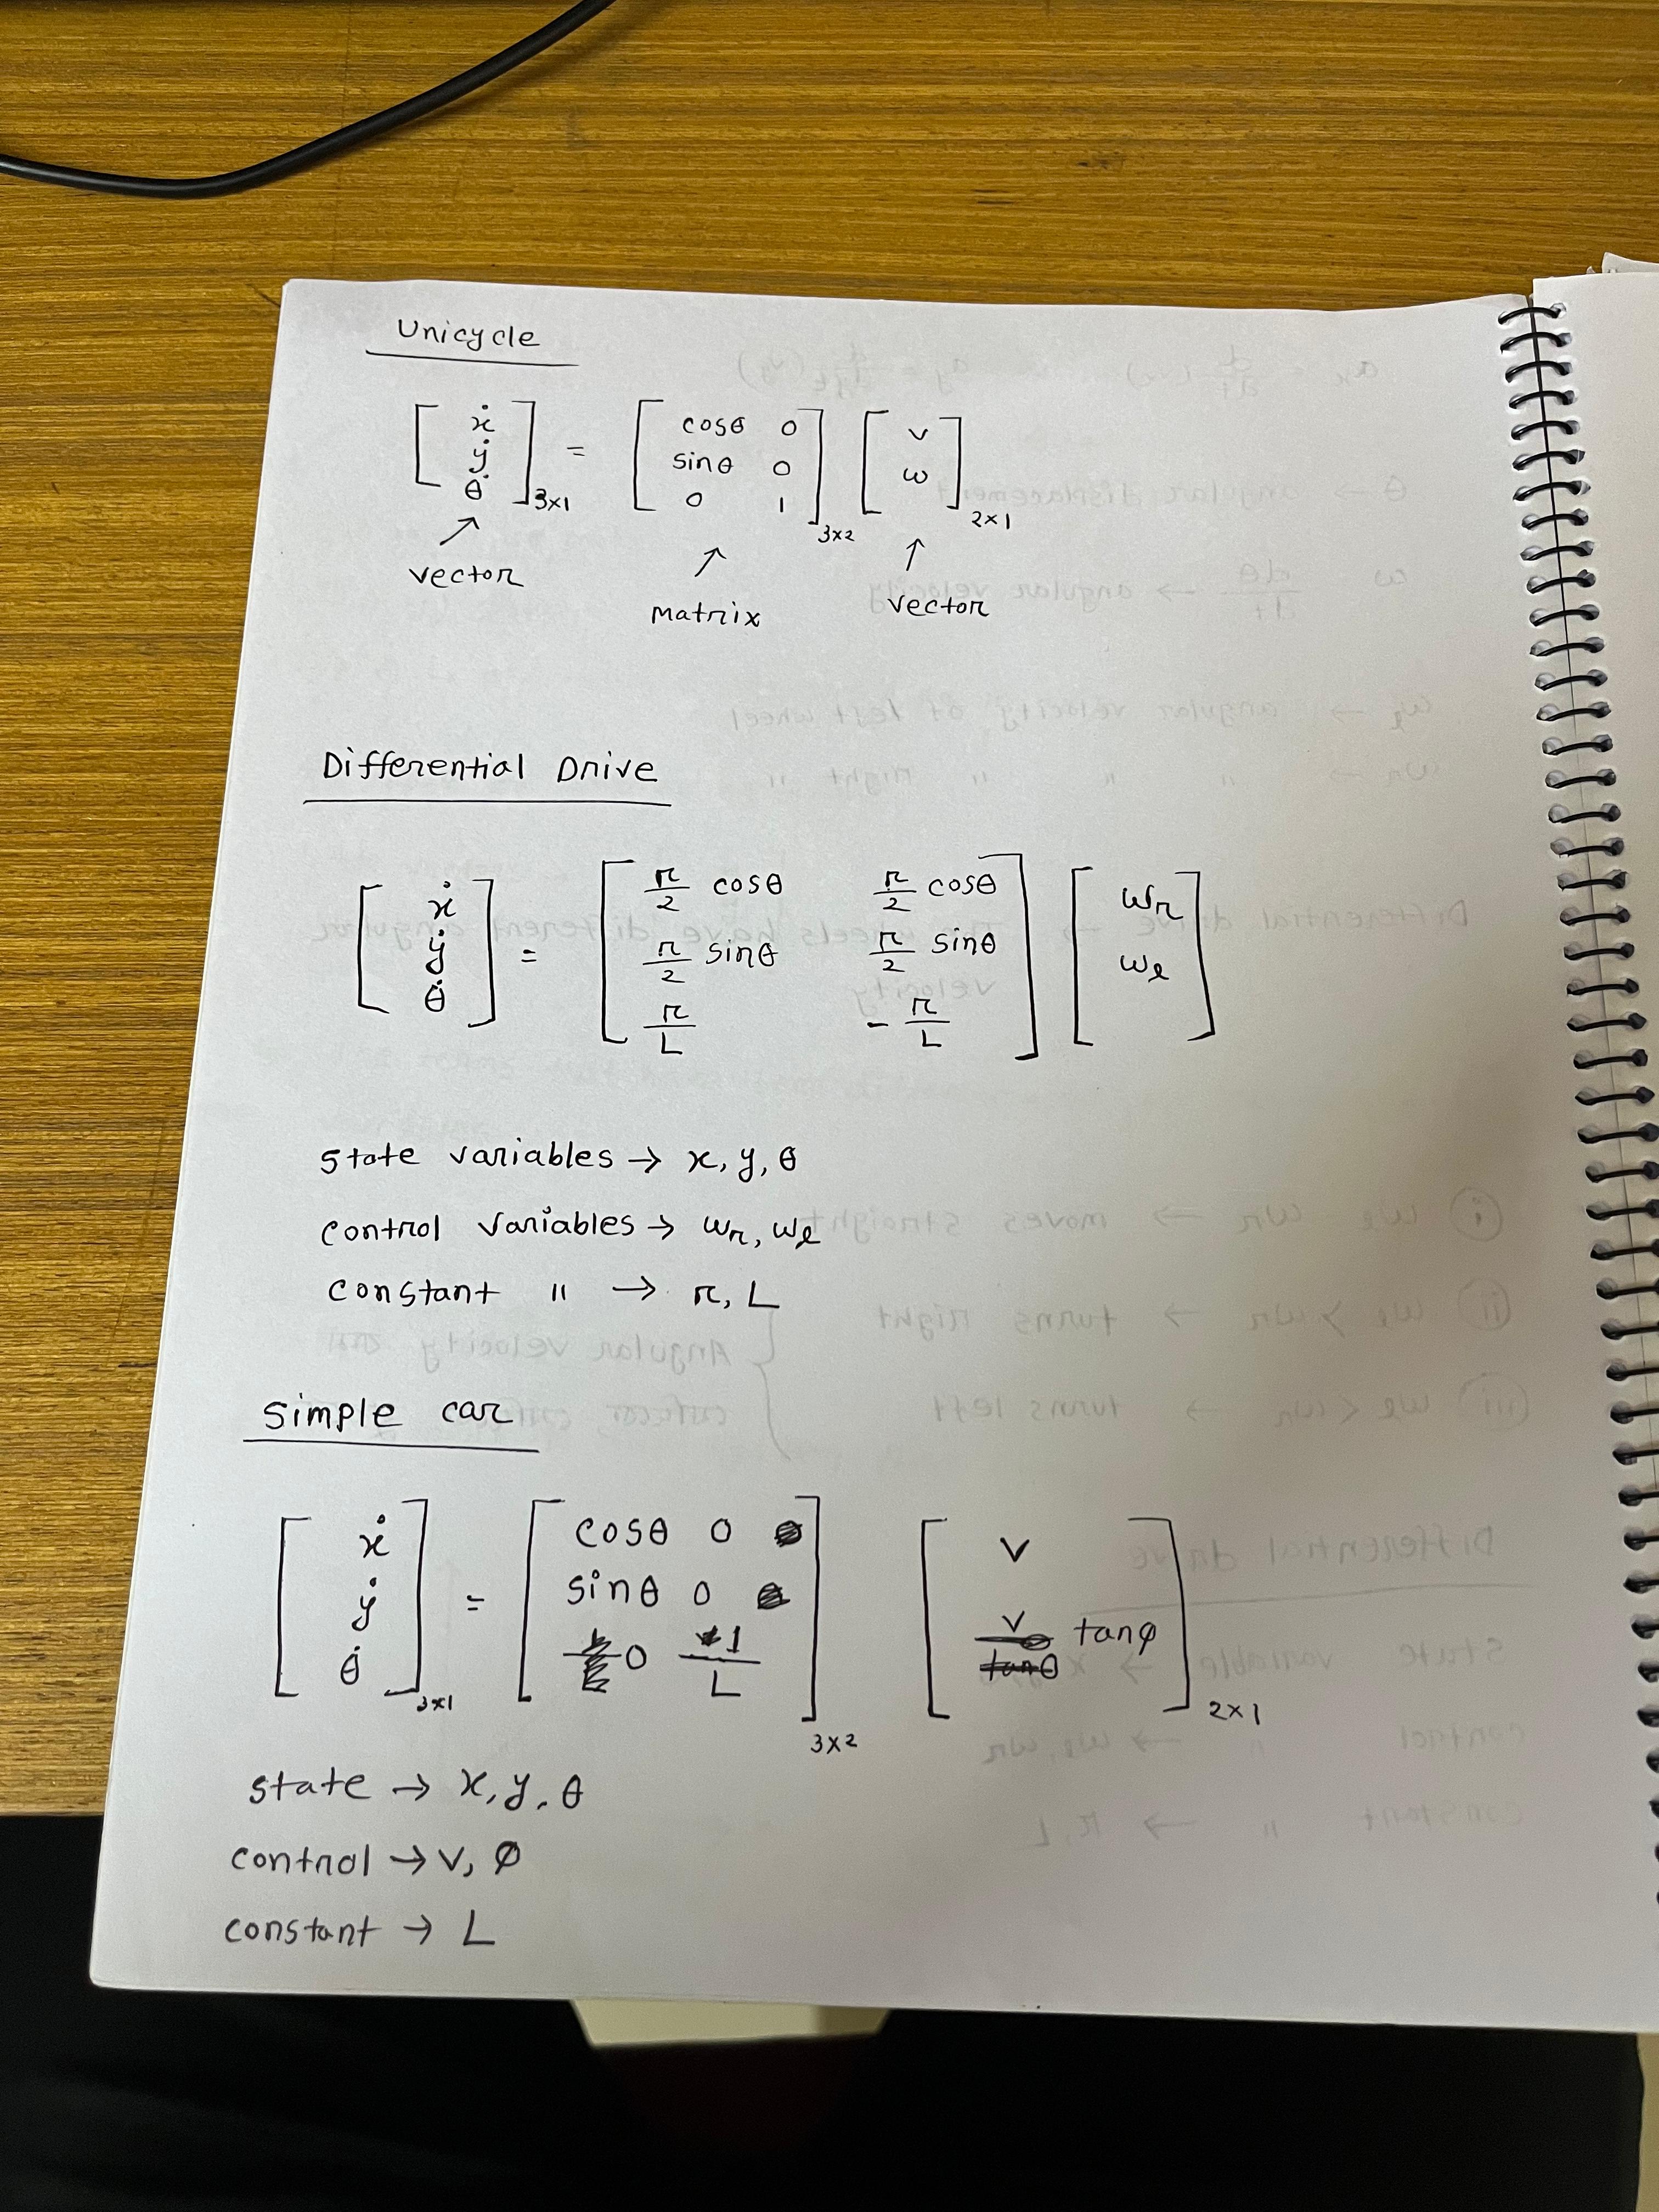 Unicycle
[ ẋ ẏ θ̇ ]3×1 = [ cosθ 0 ; sinθ 0 ; 0 1 ]3×2 [ v ω ]2×1
vector
matrix
vector
Differential Drive
[ ẋ ẏ θ̇ ] = [ r/2 cosθ r/2 cosθ ; r/2 sinθ r/2 sinθ ; r/L - r/L ] [ ωr ωl ]
state variables → x, y, θ
control variables → ωr, ωl
constant " → r, L
simple car
[ ẋ ẏ θ̇ ]3×1 = [ cosθ 0 ; sinθ 0 ; 0 1/L ]3×2 [ v ; v tanφ ]2×1
state → x, y, θ
control → v, φ
constant → L